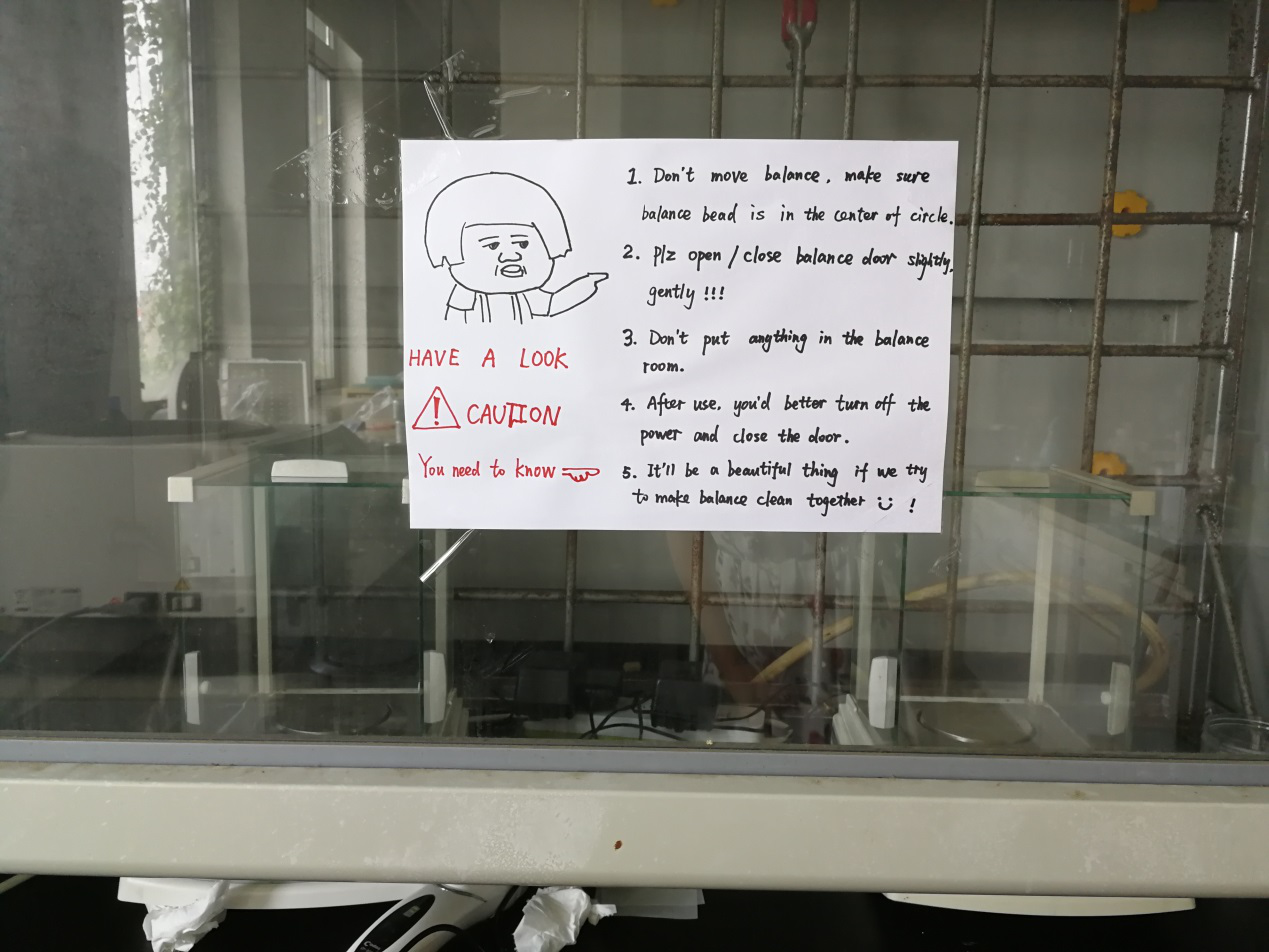 HAVE A LOOK
CAUTION
You need to know
1. Don't move balance, make sure
balance bead is in the center of circle.
2. Plz open / close balance door slightly,
gently !!!
3. Don't put anything in the balance
room.
4. After use, you'd better turn off the
power and close the door.
5. It'll be a beautiful thing if we try
to make balance clean together !